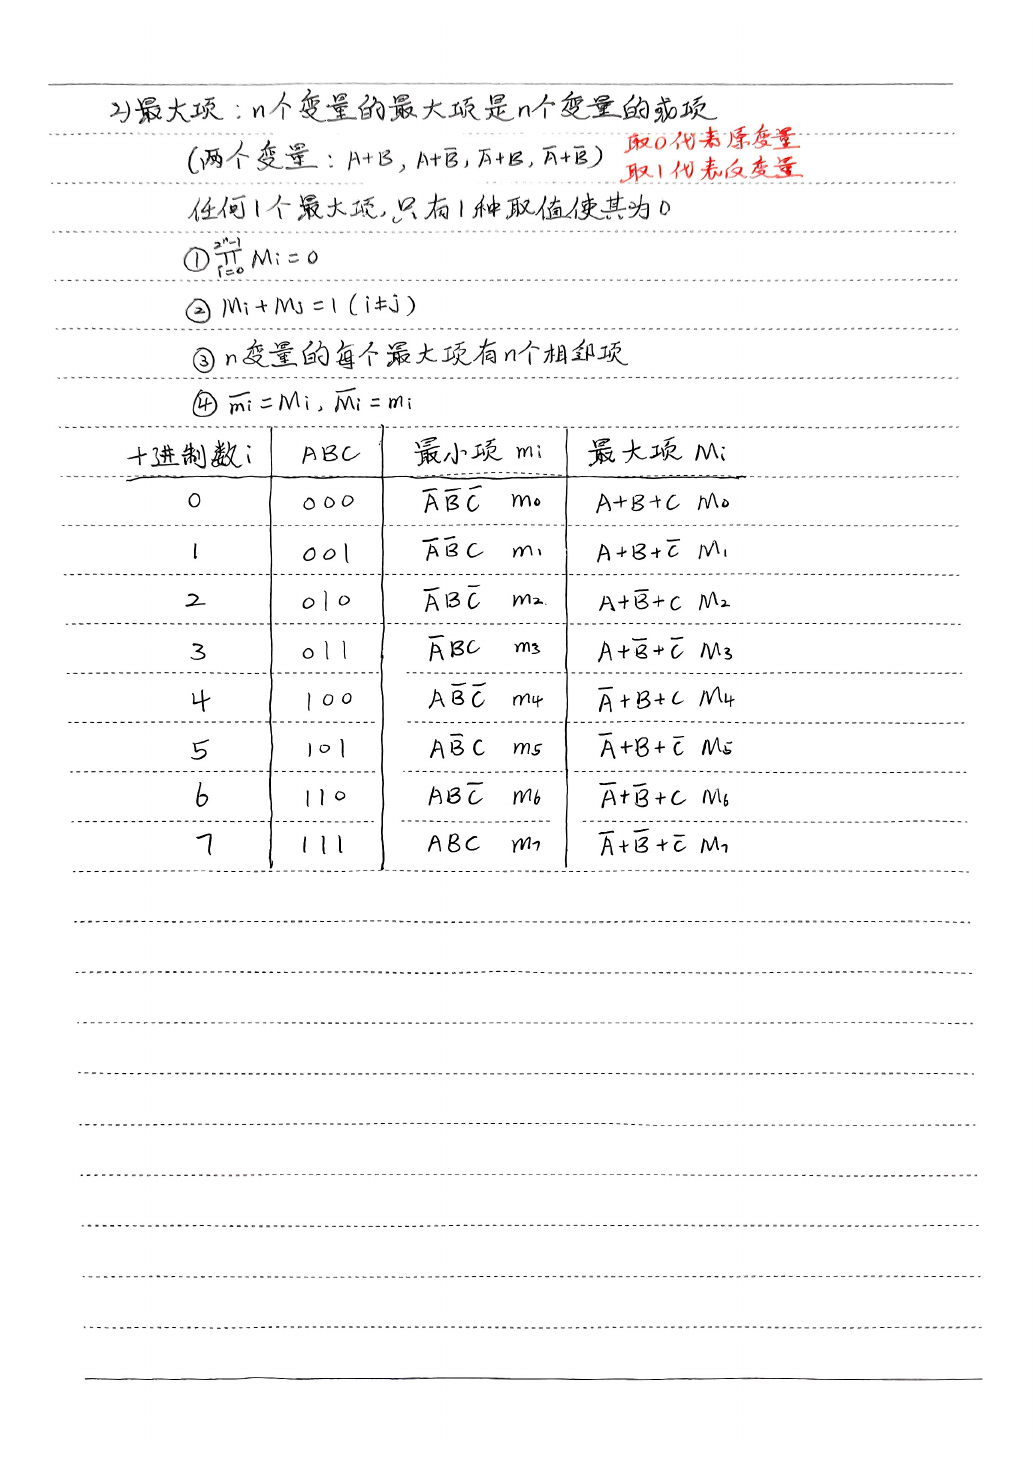 2)最大项：n个变量的最大项是n个变量的或项
(两个变量：A+B, A+B̅, A̅+B, A̅+B̅) 取0代表原变量
取1代表反变量
任何1个最大项,只有1种取值使其为0
① ∏_{i=0}^{2ⁿ-1} Mi = 0
② Mi + Mj = 1 (i≠j)
③ n变量的每个最大项有n个相邻项
④ m̅i = Mi, M̅i = mi
十进制数i ABC 最小项 mi 最大项 Mi
0 000 A̅B̅C̅ m0 A+B+C M0
1 001 A̅B̅C m1 A+B+C̅ M1
2 010 A̅BC̅ m2 A+B̅+C M2
3 011 A̅BC m3 A+B̅+C̅ M3
4 100 AB̅C̅ m4 A̅+B+C M4
5 101 AB̅C m5 A̅+B+C̅ M5
6 110 ABC̅ m6 A̅+B̅+C M6
7 111 ABC m7 A̅+B̅+C̅ M7